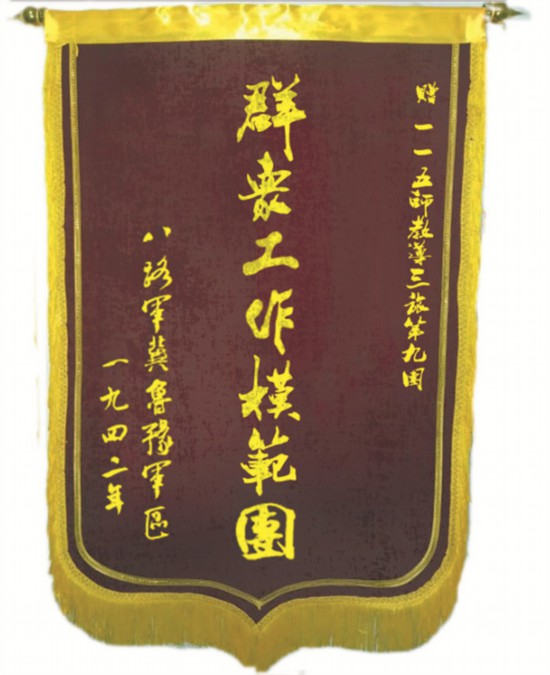 赠一一五師教導三旅第九团
群衆工作模範團
八路军冀鲁豫军區
一九四二年